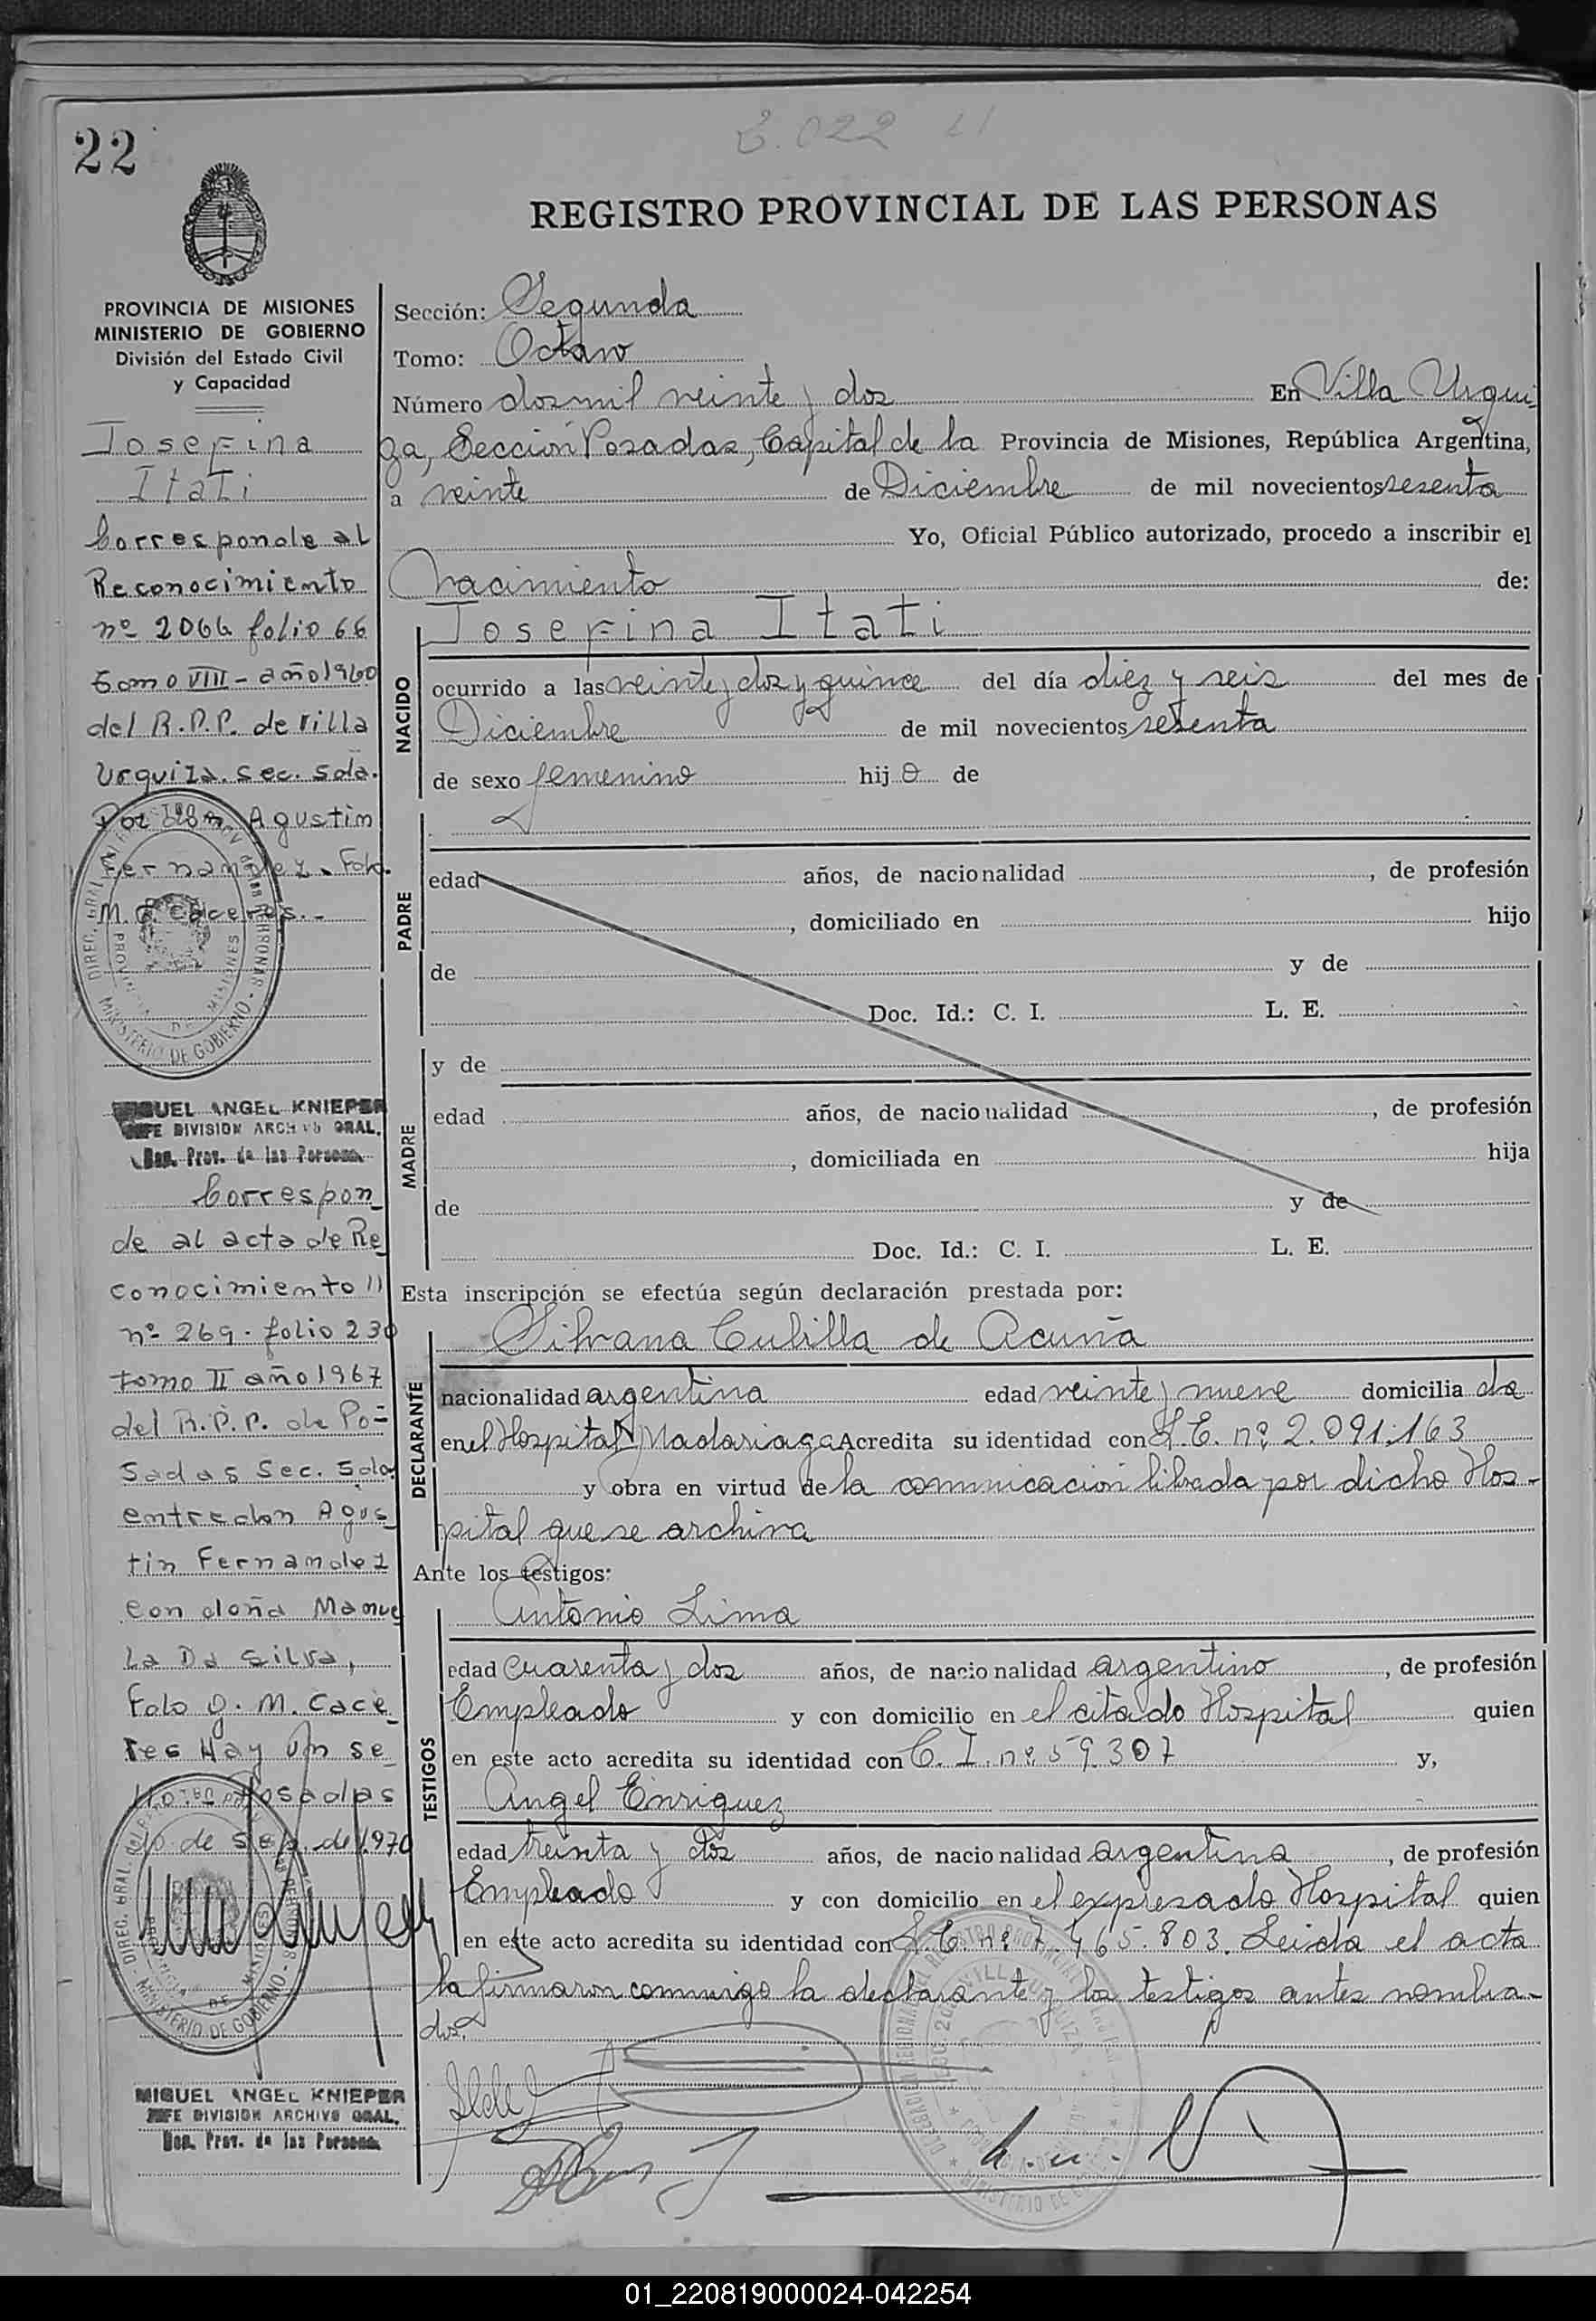 22
REGISTRO PROVINCIAL DE LAS PERSONAS
PROVINCIA DE MISIONES
MINISTERIO DE GOBIERNO
División del Estado Civil
y Capacidad
Josefina
Itati
Corresponde al
Reconocimiento
nº 2066 folio 66
tomo VIII - año 1960
del R.P.P. de Villa
Urquiza. sec. 2da.
Por don Agustin
Fernandez. Fdo.
M. G. Caceres.-
MIGUEL ANGEL KNIEPER
JEFE DIVISION ARCHIVO GRAL.
Reg. Prov. de las Personas
Correspon
de al acta de Re
conocimiento
nº 269. folio 230
tomo II año 1967
del R.P.P. de Po=
sadas Sec. 2da
entre don Agus
tin Fernandez
con doña Manue
la Da Silva,
Fdo g. M. Cace
res Hay un se
llo. Posadas
10 de Sep. de 1970
MIGUEL ANGEL KNIEPER
JEFE DIVISION ARCHIVO GRAL.
Reg. Prov. de las Personas
Sección: Segunda
Tomo: Octavo
Número dos mil veinte y dos En Villa Urqui
za, Sección Posadas, Capital de la Provincia de Misiones, República Argentina,
a veinte de Diciembre de mil novecientos sesenta
Yo, Oficial Público autorizado, procedo a inscribir el
Nacimiento de:
NACIDO
Josefina Itati
ocurrido a las veinte y dos y quince del día diez y seis del mes de
Diciembre de mil novecientos sesenta
de sexo femenino hij a de
PADRE
edad años, de nacionalidad , de profesión
, domiciliado en hijo
de y de
Doc. Id.: C. I. L. E.
MADRE
y de
edad años, de nacionalidad , de profesión
, domiciliada en hija
de y de
Doc. Id.: C. I. L. E.
Esta inscripción se efectúa según declaración prestada por:
DECLARANTE
Silvana Cubilla de Acuña
nacionalidad argentina edad veinte y nueve domicilia da
en el Hospital Madariaga Acredita su identidad con L.C. nº 2.091.163
y obra en virtud de la comunicación librada por dicho Hos-
pital que se archiva
Ante los testigos:
TESTIGOS
Antonio Lima
edad cuarenta y dos años, de nacionalidad argentino, de profesión
Empleado y con domicilio en el citado Hospital quien
en este acto acredita su identidad con C.I. nº 59.307 y,
Angel Enriquez
edad treinta y dos años, de nacionalidad argentina, de profesión
Empleado y con domicilio en el expresado Hospital quien
en este acto acredita su identidad con L.E. nº 7.465.803. Leida el acta
la firmaron conmigo la declarante y los testigos antes nombra-
dos.
01_220819000024-042254